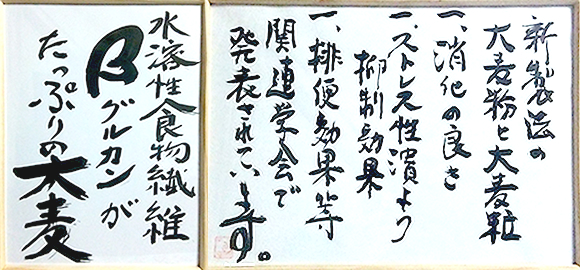 新製法の
大麦粉と大麦粒
一、消化の良さ
一、ストレス性潰よう
抑制効果
一、排便効果等
関連学会で
発表されています。
水溶性食物繊維
βグルカンが
たっぷりの大麦